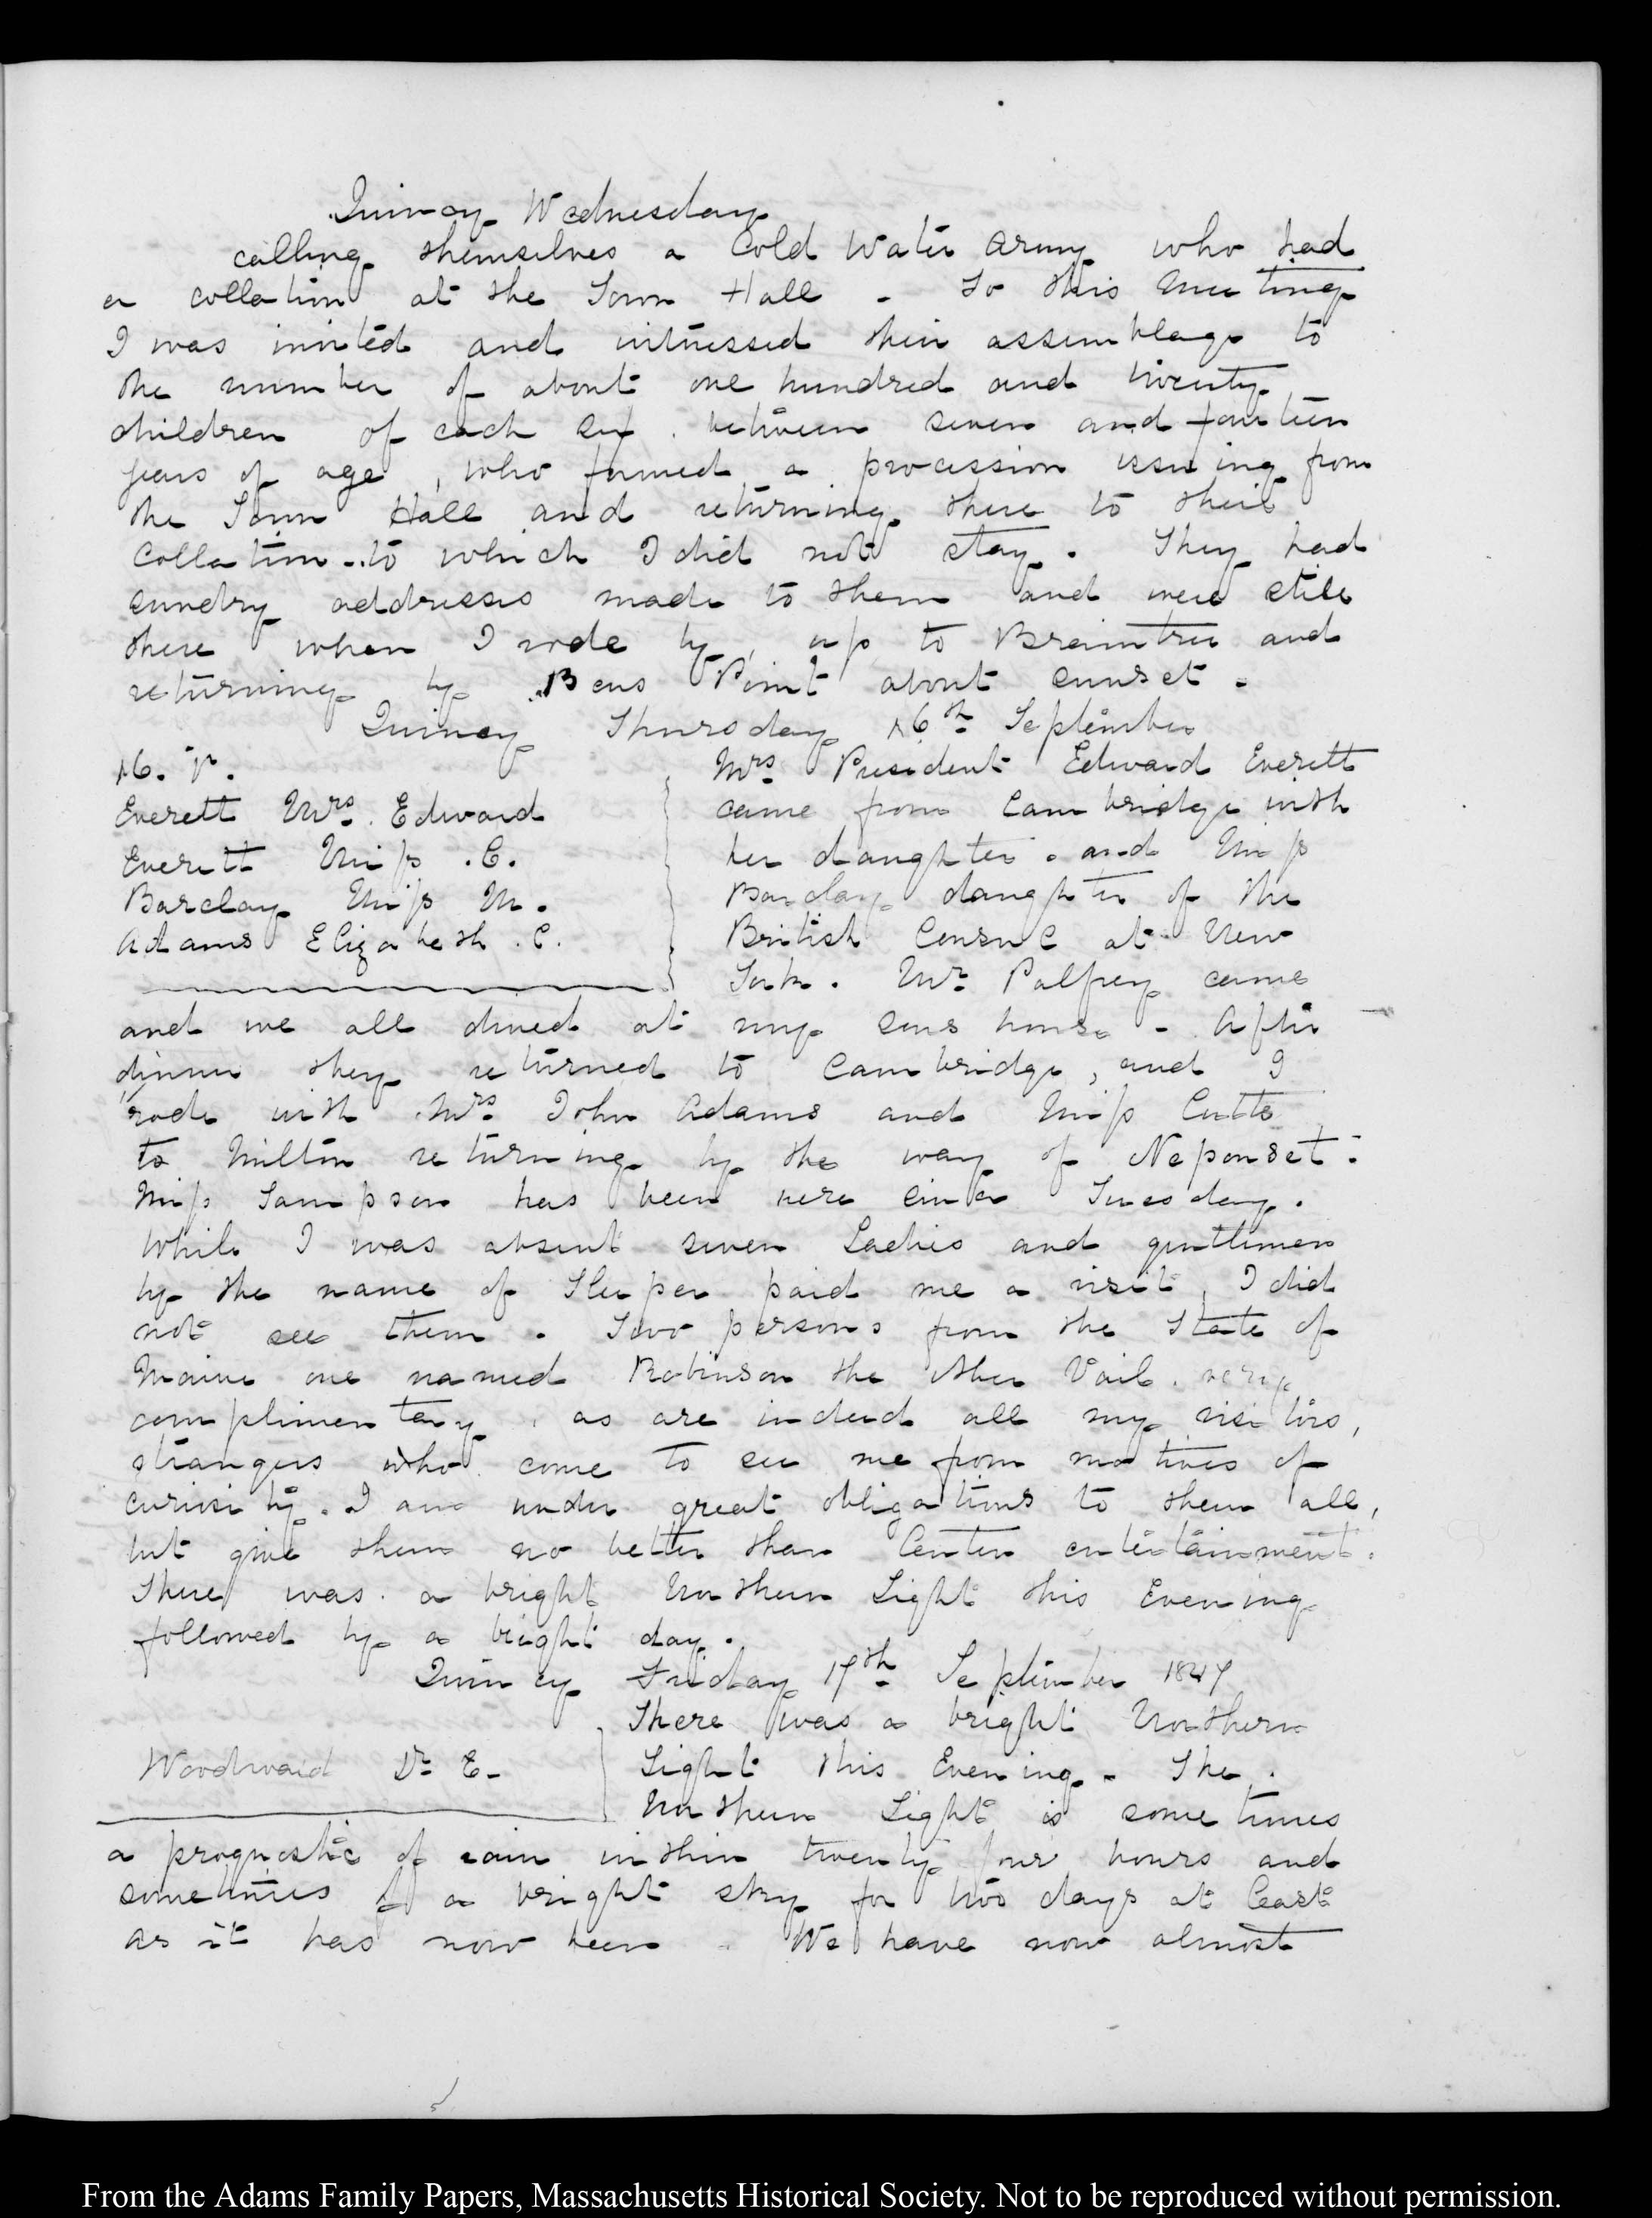 Quincy Wednesday
calling themselves a Cold Water Army who had
a collation at the Town Hall - To this Meeting
I was invited and witnessed their assemblage to
the number of about one hundred and twenty
children of each sex. between seven and fourteen
years of age, who formed a procession issuing from
the Town Hall and returning there to their
Collation - to which I did not stay. They had
sundry addresses made to them and were still
there when I rode by, up to Braintree and
returning by Bens Point about sunset.
Quincy Thursday 16th September
16. V.
Everett Mrs. Edward
Everett Miss. C.
Barclay Miss M.
Adams Elizabeth. C.
Mrs President Edward Everett
came from Cambridge with
her daughter. and Miss
Barclay daughter of the
British Consul at New
York. Mr Palfrey came
and we all dined at my sons house - After
dinner they returned to Cambridge, and I
rode with Mrs John Adams and Miss Cutts
to Milton returning by the way of Neponset.
Miss Sampson has been here since Tuesday.
While I was absent seven Ladies and gentlemen
by the name of Sleeper paid me a visit, I did
not see them. Two persons from the State of
Maine one named Robinson the other Vail. very
complimentary, as are indeed all my visitors,
strangers who come to see me from motives of
curiosity. I am under great obligations to them all,
but give them no better than Centen entertainment.
There was a bright Northern Light this Evening
followed by a bright day.
Quincy Friday 17th September 1847
Woodward Dr E.
There was a bright Northern
Light this Evening - The
Northern Light is sometimes
a prognostic of rain within twenty four hours and
sometimes of a bright sky for two days at least
as it has now been - We have now almost
From the Adams Family Papers, Massachusetts Historical Society. Not to be reproduced without permission.